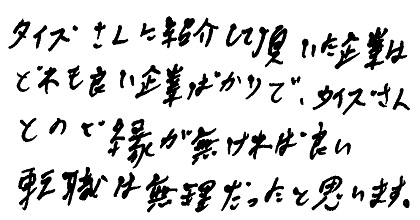 タイズさんに紹介して頂いた企業は
どれも良い企業ばかりで、タイズさん
とのご縁が無ければ良い
転職は無理だったと思います。